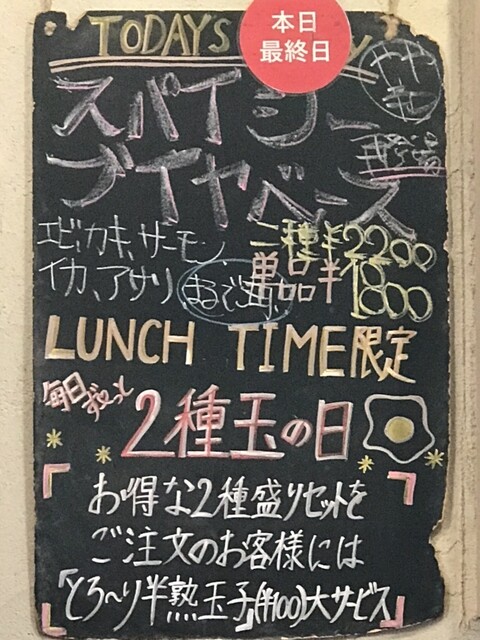 本日
最終日
TODAYS
スパイシー
ブイヤベース
再登場
エビ、カキ、サーモン
イカ、アサリ
二種¥2200
単品¥1800
LUNCH TIME限定
毎日ずーっと
2種玉の日
お得な2種盛りセットを
ご注文のお客様には
「とろ〜り半熟玉子」(¥100)大サービス